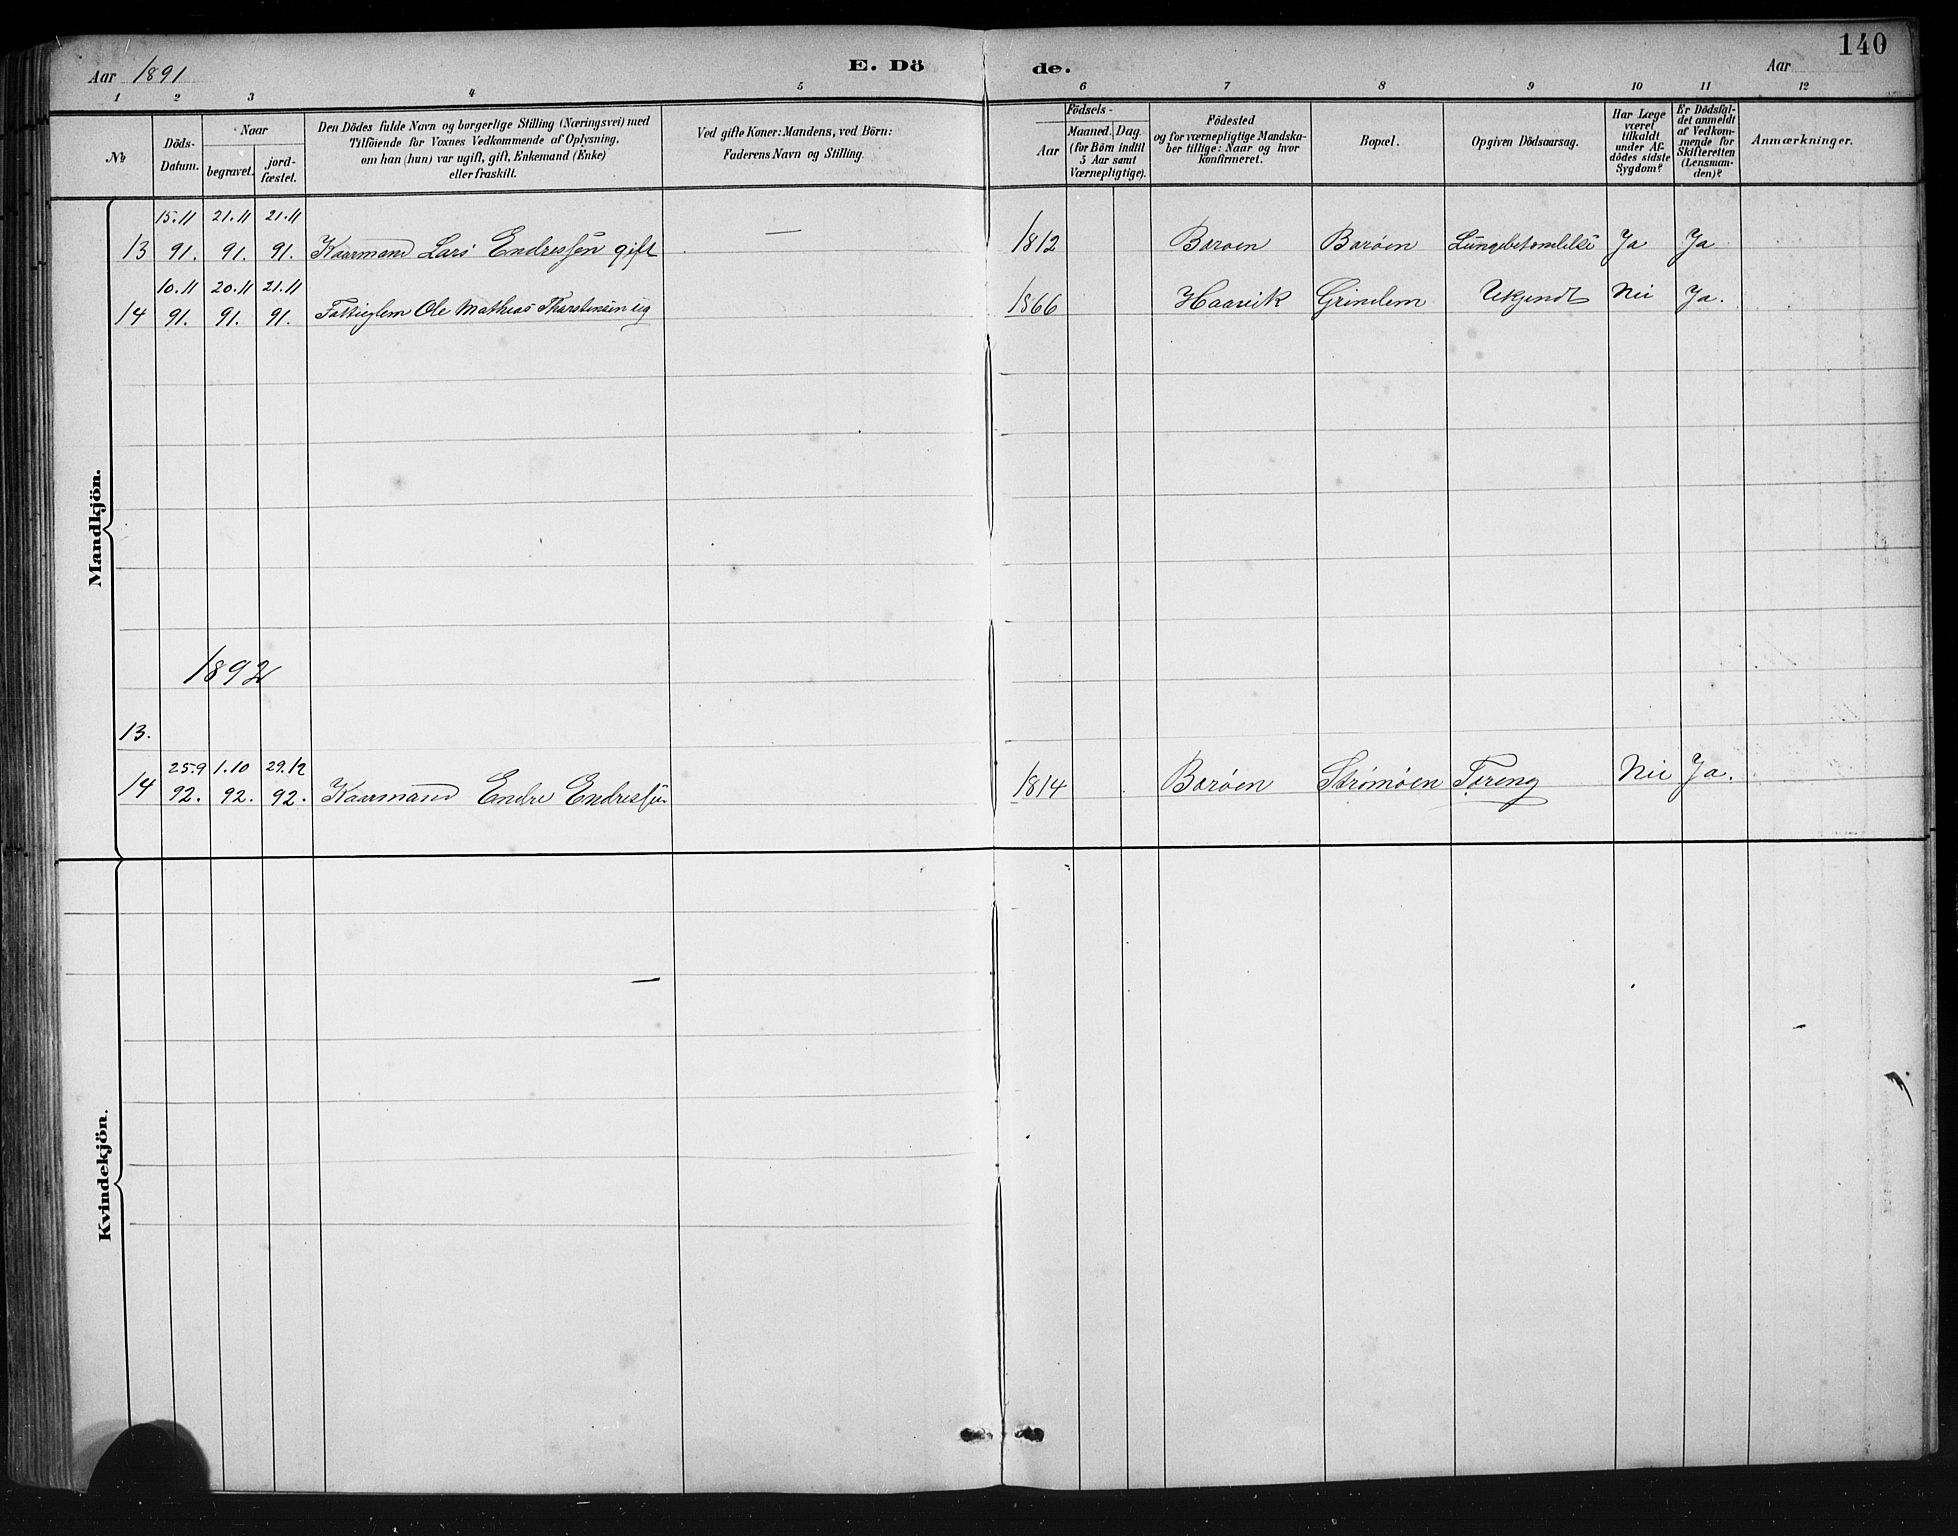 140
Aar 1891 E. Döde. Aar
1 2 3 4 5 6 7 8 9 10 11 12
№
Döds-Datum.
Naar
begravet.
jord-fæstet.
Den Dödes fulde Navn og borgerlige Stilling (Næringsvei) med
Tilföiende for Voxnes Vedkommende af Oplysning,
om han (hun) var ugift, gift, Enkemand (Enke)
eller fraskilt.
Ved gifte Koner: Mandens, ved Börn:
Faderens Navn og Stilling.
Födsels-
Aar
Maaned. Dag.
(for Börn indtil
5 Aar samt
Værnepligtige).
Födested
og for værnepligtige Mandska-
ber tillige: Naar og hvor
Konfirmeret.
Bopæl.
Opgiven Dödsaarsag.
Har Læge
været
tilkaldt
under Af-
dödes sidste
Sygdom?
Er Dödsfal-
det anmeldt
af Vedkom-
mende for
Skifteretten
(Lensman-
den)?
Anmærkninger.
Mandkjön.
15.11 21.11 21.11
13 91. 91. 91. Kaarmand Lars Endressen gift — 1812 Baroen Barøen Lungebetændelse Ja Ja
10.11 20.11 21.11
14 91. 91. 91. Fattiglem Ole Mathias Tharstensen ug 1866 Haavik Grindem Ukjendt Nei Ja.
1892
13.
25.9 1.10 29.12
14 92. 92. 92. Kaarmand Endre Endressen 1814 Barøen Strømøen Tæring Nei Ja.
Kvindekjön.